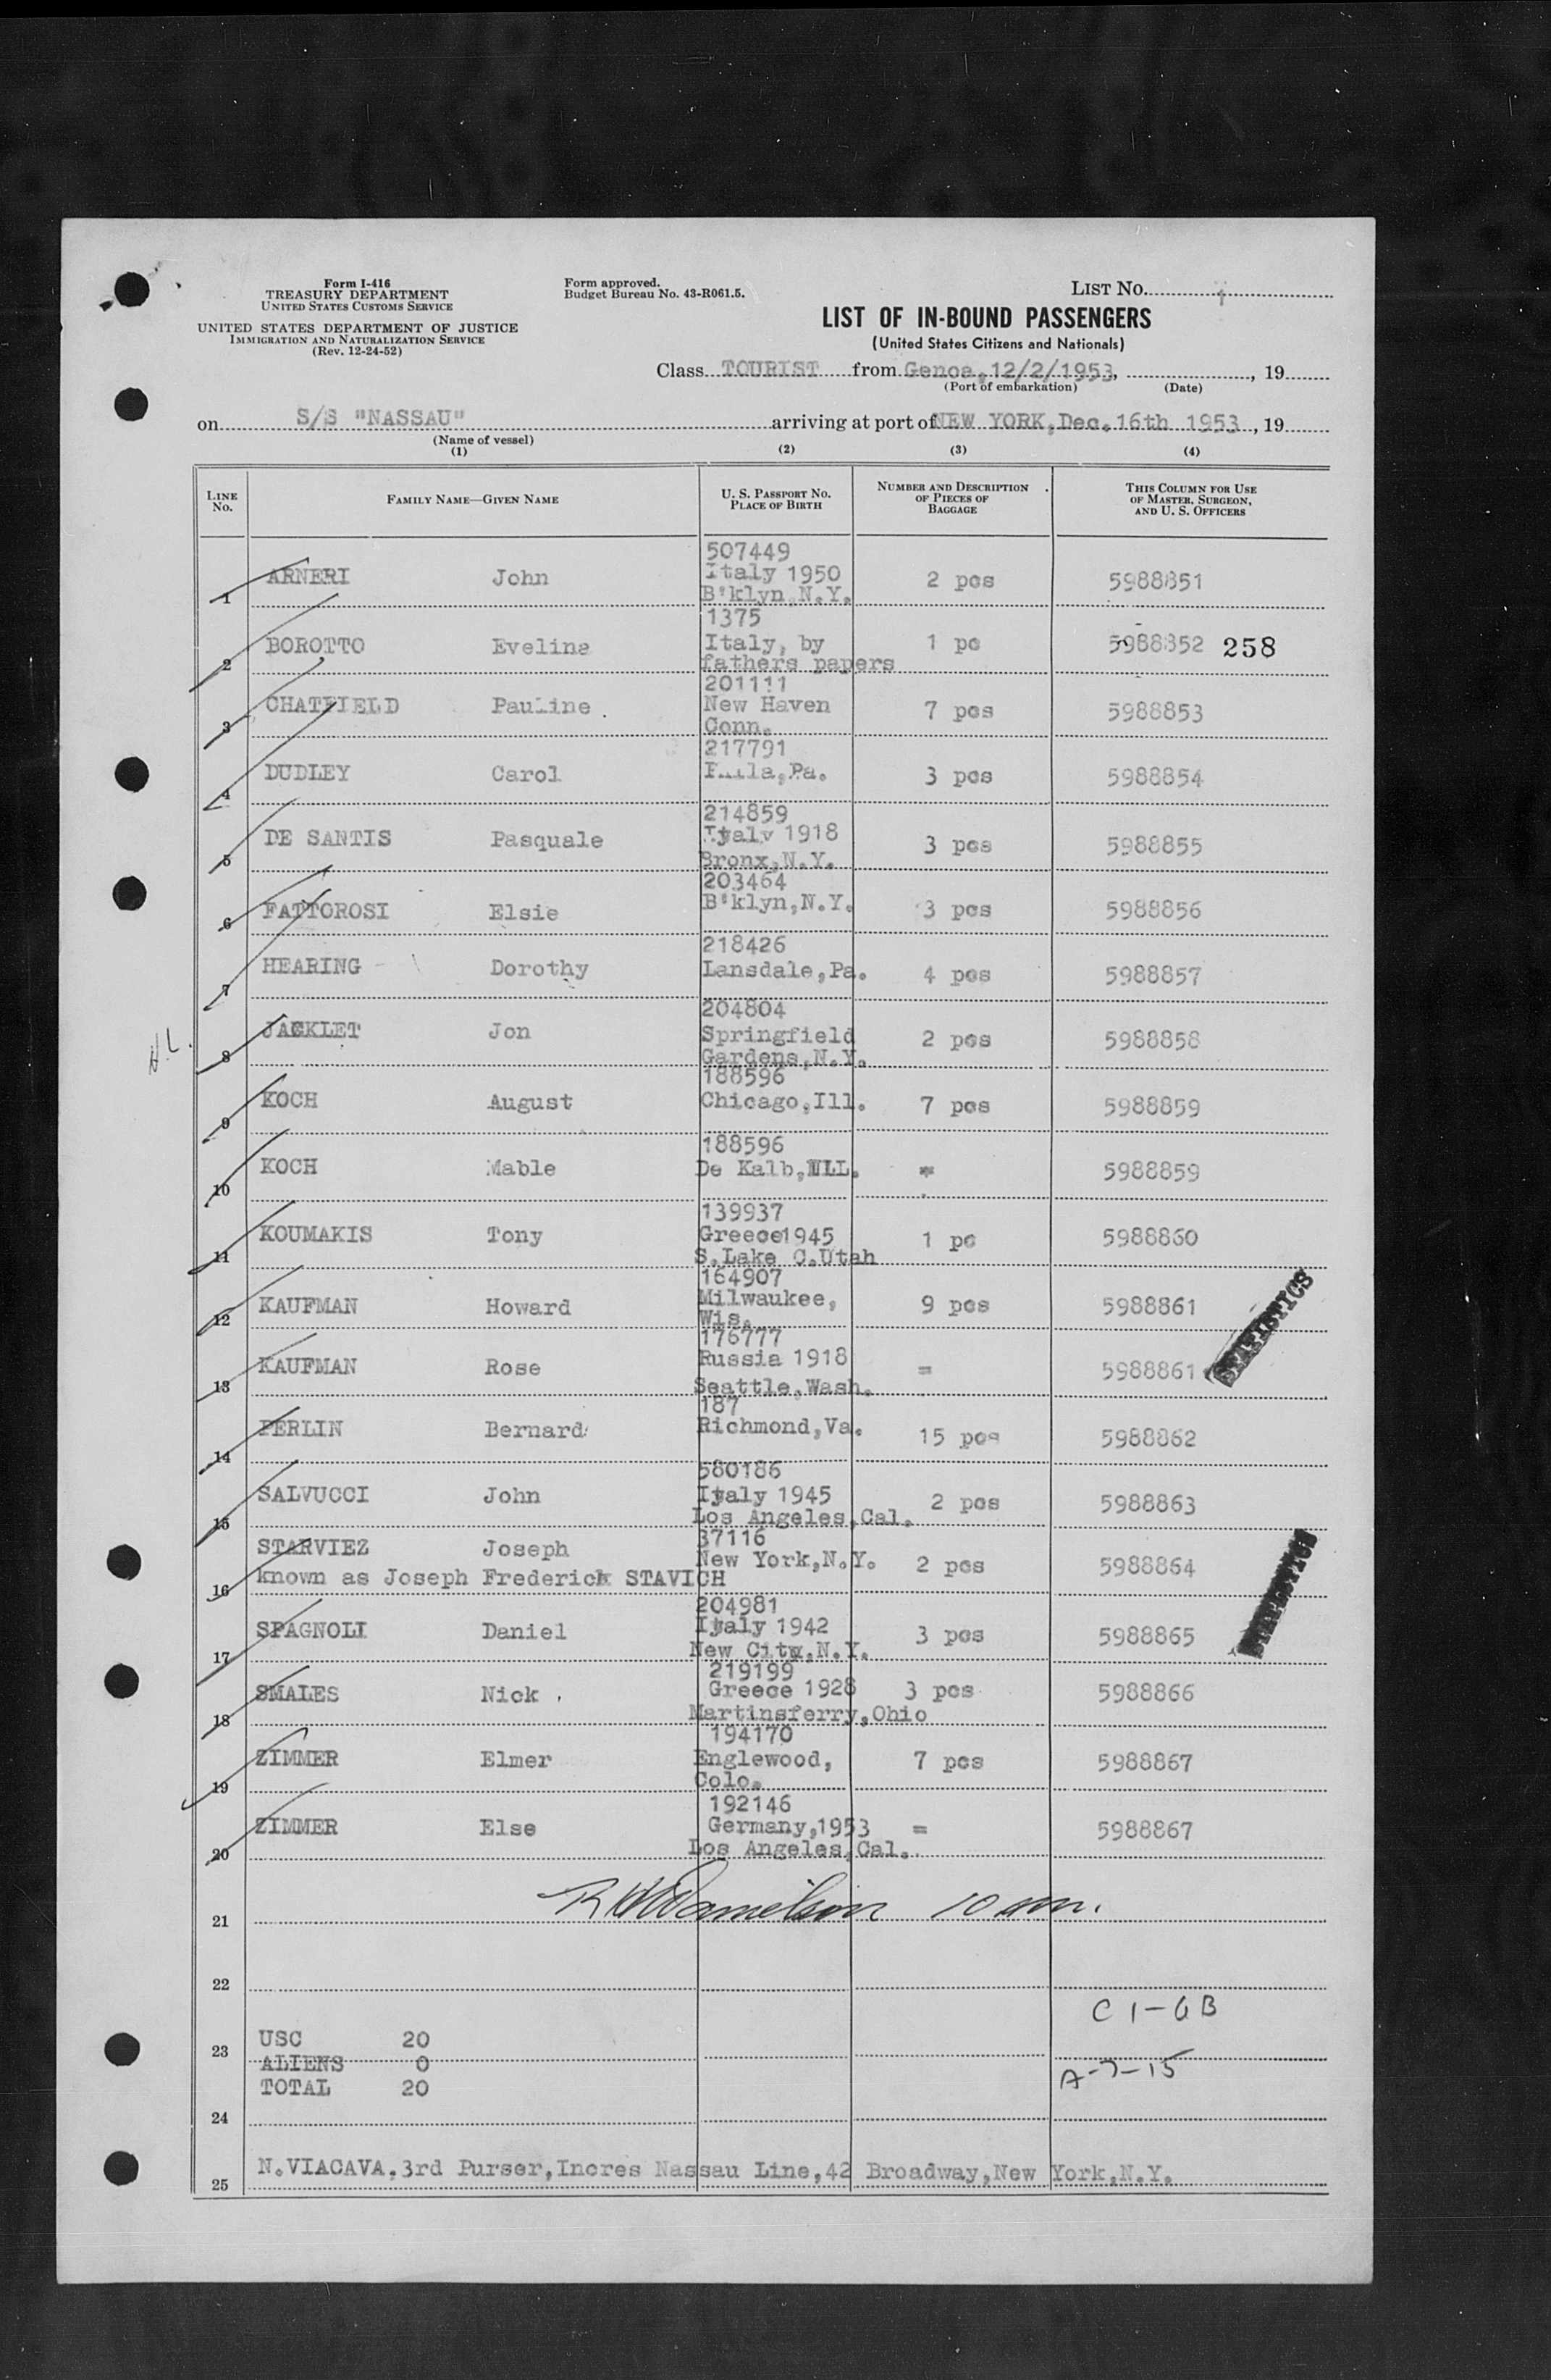 Form I-416
TREASURY DEPARTMENT
UNITED STATES CUSTOMS SERVICE
UNITED STATES DEPARTMENT OF JUSTICE
IMMIGRATION AND NATURALIZATION SERVICE
(Rev. 12-24-52)
Form approved.
Budget Bureau No. 43-R061.5.
LIST NO.
LIST OF IN-BOUND PASSENGERS
(United States Citizens and Nationals)
Class TOURIST from Genoa, 12/2/1953, , 19
(Port of embarkation) (Date)
on S/S "NASSAU" arriving at port of NEW YORK, Dec. 16th 1953, 19
(Name of vessel)
(1) (2) (3) (4)
LINE NO. FAMILY NAME—GIVEN NAME U. S. PASSPORT NO. PLACE OF BIRTH NUMBER AND DESCRIPTION OF PIECES OF BAGGAGE THIS COLUMN FOR USE OF MASTER, SURGEON, AND U. S. OFFICERS
507449
1 ARNERI John Italy 1950 2 pcs 5988851
B'klyn, N.Y.
1375
2 BOROTTO Eveline Italy, by 1 pc 5988852 258
fathers papers
201111
3 CHATFIELD Pauline New Haven 7 pcs 5988853
Conn.
217791
4 DUDLEY Carol Phila, Pa. 3 pcs 5988854
214859
5 DE SANTIS Pasquale Italy 1918 3 pcs 5988855
Bronx, N.Y.
203464
6 FATTOROSI Elsie B'klyn, N.Y. 3 pcs 5988856
218426
7 HEARING Dorothy Lansdale, Pa. 4 pcs 5988857
204804
8 JACKLET Jon Springfield 2 pcs 5988858
Gardens, N.Y.
H.L.
188596
9 KOCH August Chicago, Ill. 7 pcs 5988859
188596
10 KOCH Mable De Kalb, ILL. = 5988859
139937
11 KOUMAKIS Tony Greece1945 1 pc 5988860
S. Lake C. Utah
164907
12 KAUFMAN Howard Milwaukee, 9 pcs 5988861
Wis.
176777
13 KAUFMAN Rose Russia 1918 = 5988861 STATISTICS
Seattle, Wash.
187
14 PERLIN Bernard Richmond, Va. 15 pcs 5988862
580186
15 SALVUCCI John Italy 1945 2 pcs 5988863
Los Angeles, Cal.
37116
16 STARVIEZ Joseph New York, N.Y. 2 pcs 5988864
known as Joseph Frederick STAVICH
204981
17 SPAGNOLI Daniel Italy 1942 3 pcs 5988865 STATISTICS
New City, N.Y.
219199
18 SMALES Nick Greece 1928 3 pcs 5988866
Martinsferry, Ohio
194170
19 ZIMMER Elmer Englewood, 7 pcs 5988867
Colo.
192146
20 ZIMMER Else Germany, 1953 = 5988867
Los Angeles, Cal.
21 10 am.
22
C 1-GB
23 USC 20
ALIENS 0
A-7-15
TOTAL 20
24
25 N. VIACAVA, 3rd Purser, Incres Nassau Line, 42 Broadway, New York, N.Y.